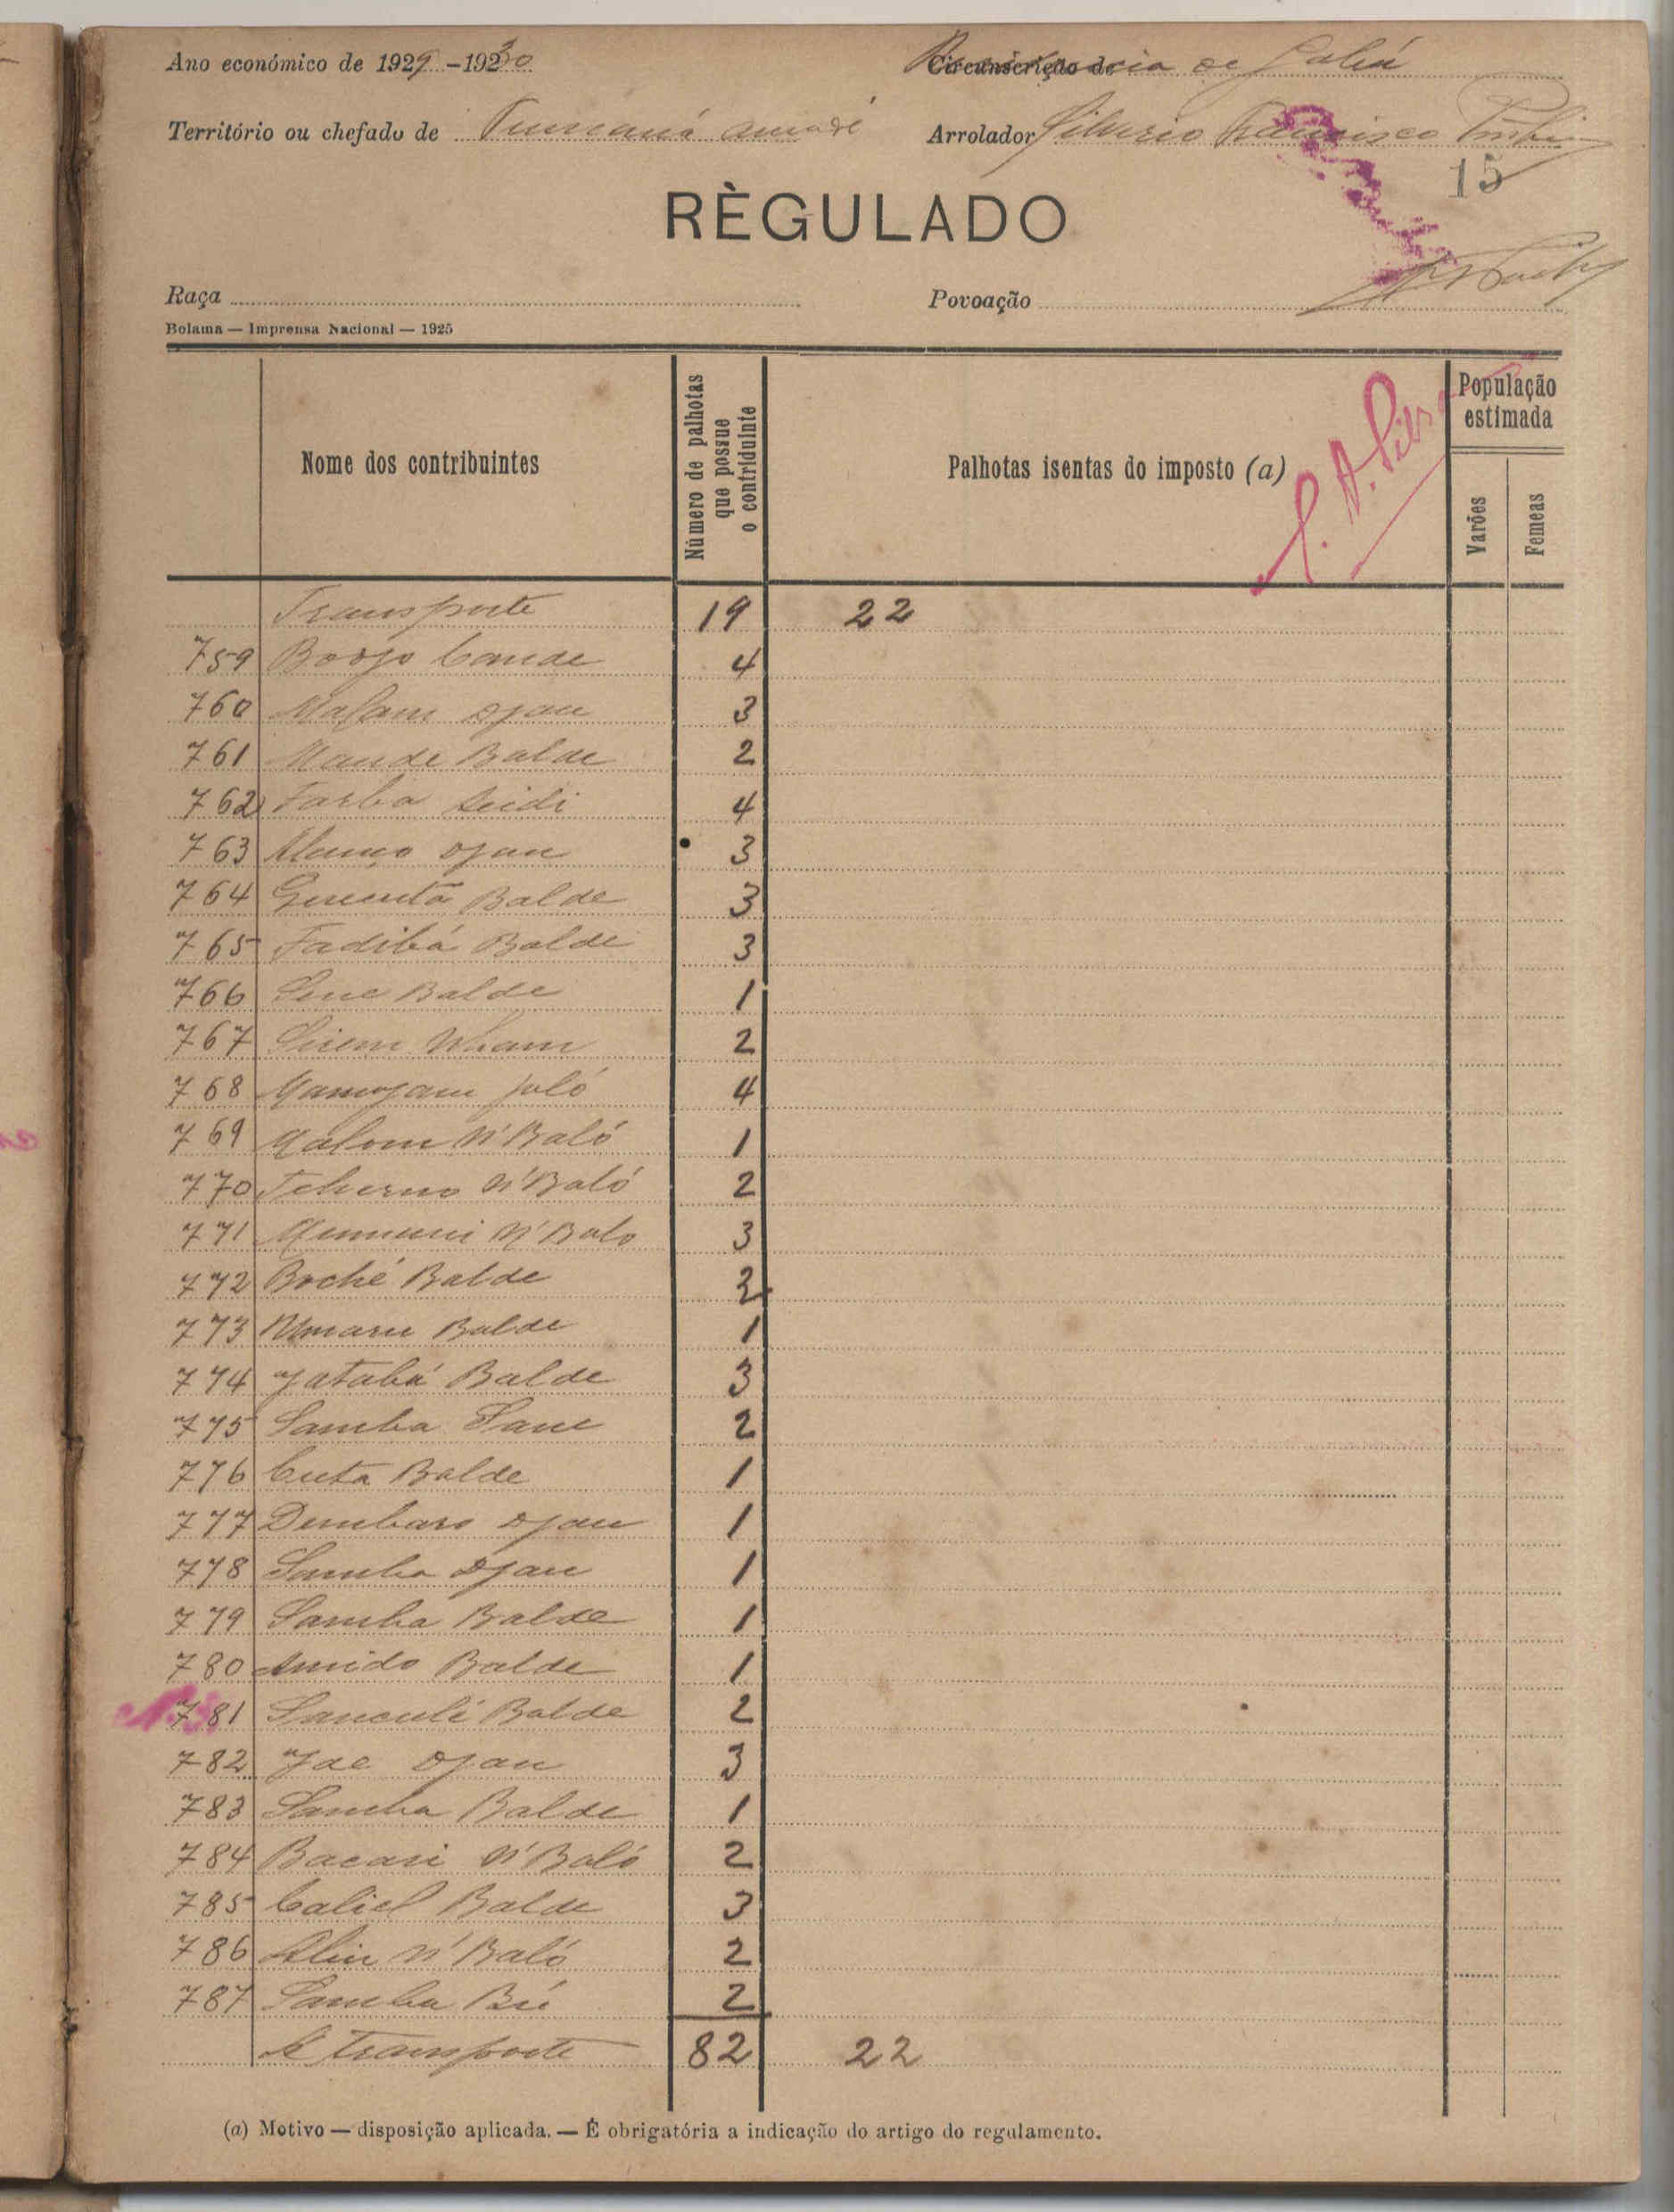 Ano económico de 1929-1930 Circunscrição de Residencia de Gabú
Território ou chefado de Tumaná Arrolador Silverio Francisco
15
RÈGULADO
Raça Povoação
Bolama — Imprensa Nacional — 1925
Nome dos contribuintes
Número de palhotas
que possue
o contriduinte
Palhotas isentas do imposto (a)
População
estimada
Varões
Femeas
Transporte 19 22
759 Bodjo Cande 4
760 Malam Djau 3
761 Mande Balde 2
762 Farba Seidi 4
763 Djau 3
764 Balde 3
765 Fadibá Balde 3
766 Sene Balde 1
767 2
768 Jaló 4
769 Malam N'Baló 1
770 Tcherno N'Baló 2
771 N'Balo 3
772 Boché Balde 2
773 Umaru Balde 1
774 Balde 3
775 Samba Sane 2
776 Cuta Balde 1
777 Dembaro Djau 1
778 Samba Djau 1
779 Samba Balde 1
780 Amido Balde 1
781 Sanculé Balde 2
782 Djau 3
783 Samba Balde 1
784 Bacari N'Baló 2
785 Caliel Balde 3
786 Aliu N'Baló 2
787 Samba Bú 2
A transporte 82 22
(a) Motivo — disposição aplicada. — É obrigatória a indicação do artigo do regulamento.